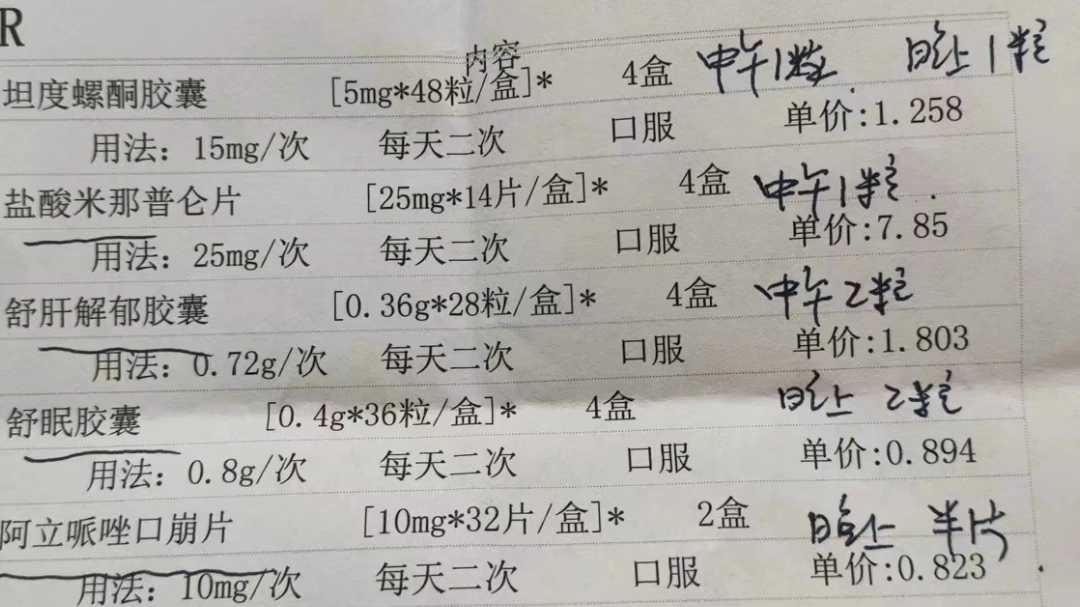 R
内容
坦度螺酮胶囊 [5mg*48粒/盒]* 4盒 中午1粒 晚上1粒
用法：15mg/次 每天二次 口服 单价:1.258
盐酸米那普仑片 [25mg*14片/盒]* 4盒 中午1粒.
用法：25mg/次 每天二次 口服 单价:7.85
舒肝解郁胶囊 [0.36g*28粒/盒]* 4盒 中午2粒
用法：0.72g/次 每天二次 口服 单价:1.803
舒眠胶囊 [0.4g*36粒/盒]* 4盒 晚上2粒
用法：0.8g/次 每天二次 口服 单价:0.894
阿立哌唑口崩片 [10mg*32片/盒]* 2盒 晚上半片
用法：10mg/次 每天二次 口服 单价:0.823